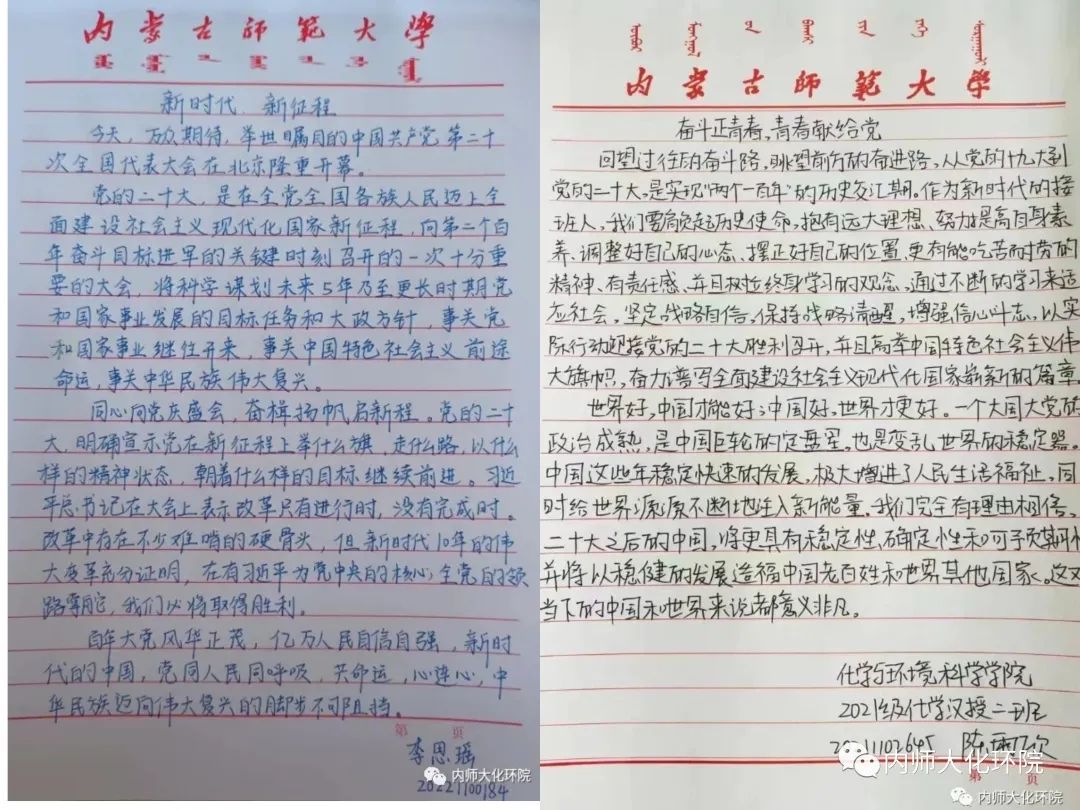 内蒙古师范大学
新时代、新征程
今天，万众期待，举世瞩目的中国共产党第二十
次全国代表大会在北京隆重开幕。
党的二十大，是在全党全国各族人民迈上全
面建设社会主义现代化国家新征程，向第二个百
年奋斗目标进军的关键时刻召开的一次十分重
要的大会，将科学谋划未来5年乃至更长时期党
和国家事业发展的目标任务和大政方针，事关党
和国家事业继往开来，事关中国特色社会主义前途
命运，事关中华民族伟大复兴。
同心向党庆盛会，奋楫扬帆启新程。党的二十
大，明确宣示党在新征程上举什么旗，走什么路，以什么
样的精神状态，朝着什么样的目标继续前进。习近
平总书记在大会上表示改革只有进行时，没有完成时。
改革中存在不少难啃的硬骨头，但新时代10年的伟
大变革充分证明，在有习近平为党中央的核心；全党的领
路掌舵，我们必将取得胜利。
百年大党风华正茂，亿万人民自信自强，新时
代的中国，党同人民同呼吸，共命运，心连心，中
华民族迈向伟大复兴的脚步不可阻挡。
第 页
李思瑶
20221100184
内师大化环院
内蒙古师范大学
奋斗正青春，青春献给党
回望过往的奋斗路，眺望前方的奋进路，从党的十九大到
党的二十大，是实现“两个一百年”的历史交汇期。作为新时代的接
班人，我们要肩负起历史使命，抱有远大理想、努力提高自身素
养、调整好自己的心态、摆正好自己的位置、更有能吃苦而耐劳的
精神、有责任感、并且树立终身学习的观念，通过不断的学习来适
应社会。坚定战略自信，保持战略清醒，增强信心斗志，以实
际行动迎接党的二十大胜利召开，并且高举中国特色社会主义伟
大旗帜，奋力谱写全面建设社会主义现代化国家崭新的篇章。
世界好，中国才能好；中国好，世界才更好。一个大国大党的
政治成熟，是中国巨轮的定盘星，也是变乱世界的稳定器。
中国这些年稳定快速的发展，极大增进了人民生活福祉，同
时给世界源源不断地注入新能量。我们完全有理由相信，
二十大之后的中国，将更具有稳定性、确定性和可予预期性
并将以稳健的发展造福中国老百姓和世界其他国家。这对
当下的中国和世界来说都意义非凡。
化学与环境科学学院
2021级化学汉授二班
20211102645 陈
内师大化环院
第 页
内师大化环院